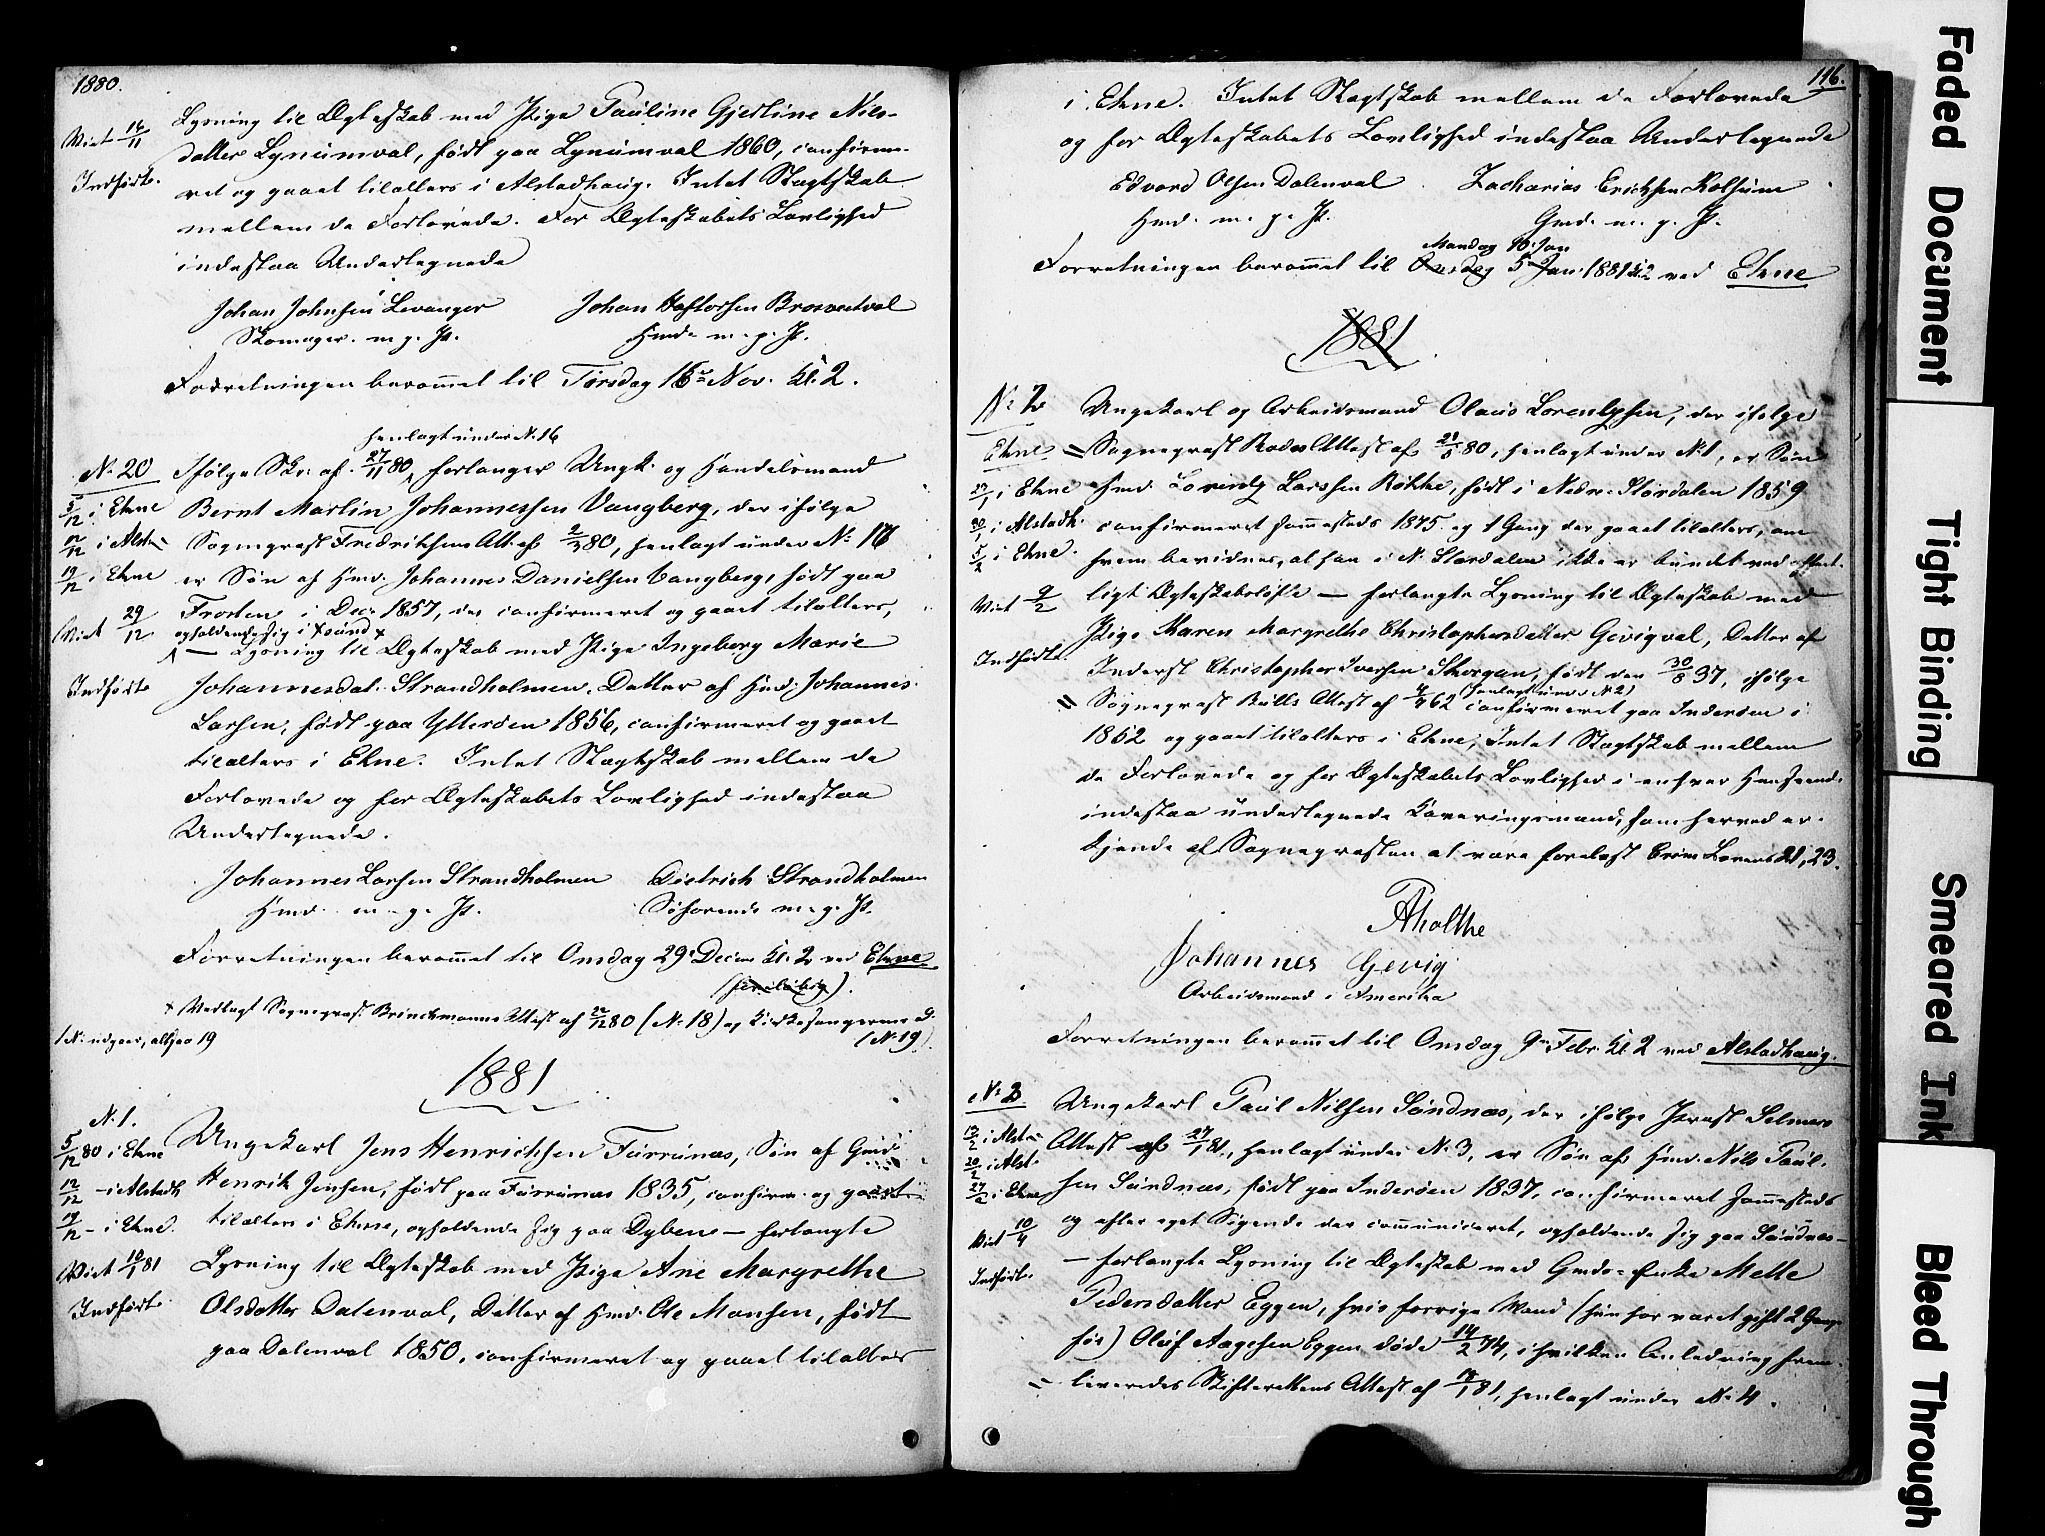 1880.
Lysning til Ægteskab med Pige Pauline Gjertine Nils-
Viet 16/11
datter Lynumval, født paa Lynumval 1860, confirme-
Indført.
ret og gaaet tilalters i Alstadhaug. Intet Slægtskab
mellem de Forlovede. For Ægteskabets Lovlighed
indestaa Undertegnede
Johan Johnsen Levanger Johan
Skomager. m. p. P. Hmd. m. p. P.
Forretningen berammet til Tirsdag 16de Nov. Kl. 2.
henlagt under N. 16
N. 20 Ifølge Skr. af 27/11 80, forlanger Ungk. og Handelsmand
5/12 i Ekne Bernt Martin Johannessen Vangberg, der ifølge
12/12 i Alst. Sognepræst Fredriksens Att. af 80, henlagt under N. 17
19/12 i Ekne er Søn af Hmd. Johannes Danielsen Vangberg, født paa
Viet 29/12 Frosten i Decr 1857, der confirmeret og gaaet tilalters,
opholdende sig i
— Lysning til Ægteskab med Pige Ingeborg Marie
Indført Johannesdat. Strandholmen, Datter af Hmd. Johannes
Larsen, født paa Ytterøen 1856, confirmeret og gaaet
tilalters i Ekne. Intet Slægtskab mellem de
Forlovede og for Ægteskabets Lovlighed indestaa
Undertegnede.
Johannes Larsen Strandholmen Dietrich Strandholmen
Hmd. m. p. P. Søfarende m. p. P.
Forretningen berammet til Onsdag 29de Decem Kl. 2 ved Ekne
x Vedlagt Sognepræst Brinchmanns Attest af 22/12 80 (N. 18) og Kirkesangerens
(N. 19).
/N. udgaar, altsaa 19
1881
N. 1.
5/12 80 i Ekne Ungekarl Jens Henrichsen Furunæs, Søn af Gmd.
12/12 – i Alstadh Henrik Jensen, født paa Furunæs 1835, confirm. og gaaet
19/12 – i Ekne. tilalters i Ekne, opholdende sig paa Dybene – forlangte
Viet 10/1 81 Lysning til Ægteskab med Pige Ane Margrethe
Indført. Olsdatter Dalenval, Datter af Hmd. Ole Monsen, født
paa Dalenval 1850, confirmeret og gaaet tilalters
116.
i Ekne. Intet Slægtskab mellem de Forlovede
og for Ægteskabets Lovlighed indestaa Undertegnede
Edvard Olsen Dalenval Zacharias Erichsen
Hmd. m. p. P. Gmd. m. p. P.
Mandag 10. Jan
Forretningen berammet til Onsdag 5. Jan. 1881 Kl. 2 ved Ekne
1881
N. 2 Ungekarl og Arbeidsmand Olaus Lorentzsen, der ifølge
Ekne = Sognepræst Attest af 80, henlagt under N. 1, er Søn
23/1 i Ekne af Hmd. Lorentz Larssen Røkke, født i Nedr. Størdalen 1859
30/1 i Alstadh. confirmeret sammesteds 1875 og 1 Gang der gaaet tilalters, om
i Ekne. hvem bevidnes, at han i N. Størdalen ikke er bundet ved offent-
Viet 9/2 ligt Ægteskabsløfte – forlangte Lysning til Ægteskab med
Pige Maren Margrethe Christophersdatter Gevigval, Datter af
Indført. Inderst Christopher Iversen født den 30/8 37, ifølge
henlagt under N. 2)
= Sognepræst Bulls Attest af 62 confirmeret paa Inderøen i
1852 og gaaet tilalters i Ekne, Intet Slægtskab mellem
de Forlovede og for Ægteskabets Lovlighed i enhver Henseende
indestaa undertegnede Caveringsmænd, som herved er-
kjende af Sognepræsten at være forelæst Crim. Lovens 21, 23.
Johannes Gevig
Arbeidsmand i Amerika
Forretningen berammet til Onsdag 9de Febr. Kl. 2 ved Alstadhaug.
N. 3 Ungekarl Paul Nilsen Sundnæs, der ifølge Præst Selmers
13/2 i Alst. Attest af 27/1 81, henlagt under N. 3, er Søn af Hmd. Nils Paul-
20/2 i Alst. sen Sundnæs, født paa Inderøen 1837, confirmeret sammesteds
27/2 i Ekne og efter eget Sigende der communiceret, opholdende sig paa Sundnæs –
Viet 10/4 – forlangte Lysning til Ægteskab med Gmds-Enke Mette
Indført. Pedersdatter Eggen, hvis forrige Mand (hun har været gift 2 Gange
før) Oluf Aagesen Eggen døde 14/2 74, i hvilken Anledning frem-
= leveredes Skifterettens Attest af 81, henlagt under N. 4.
Faded Document
Tight Binding
Smeared Ink
Bleed Through